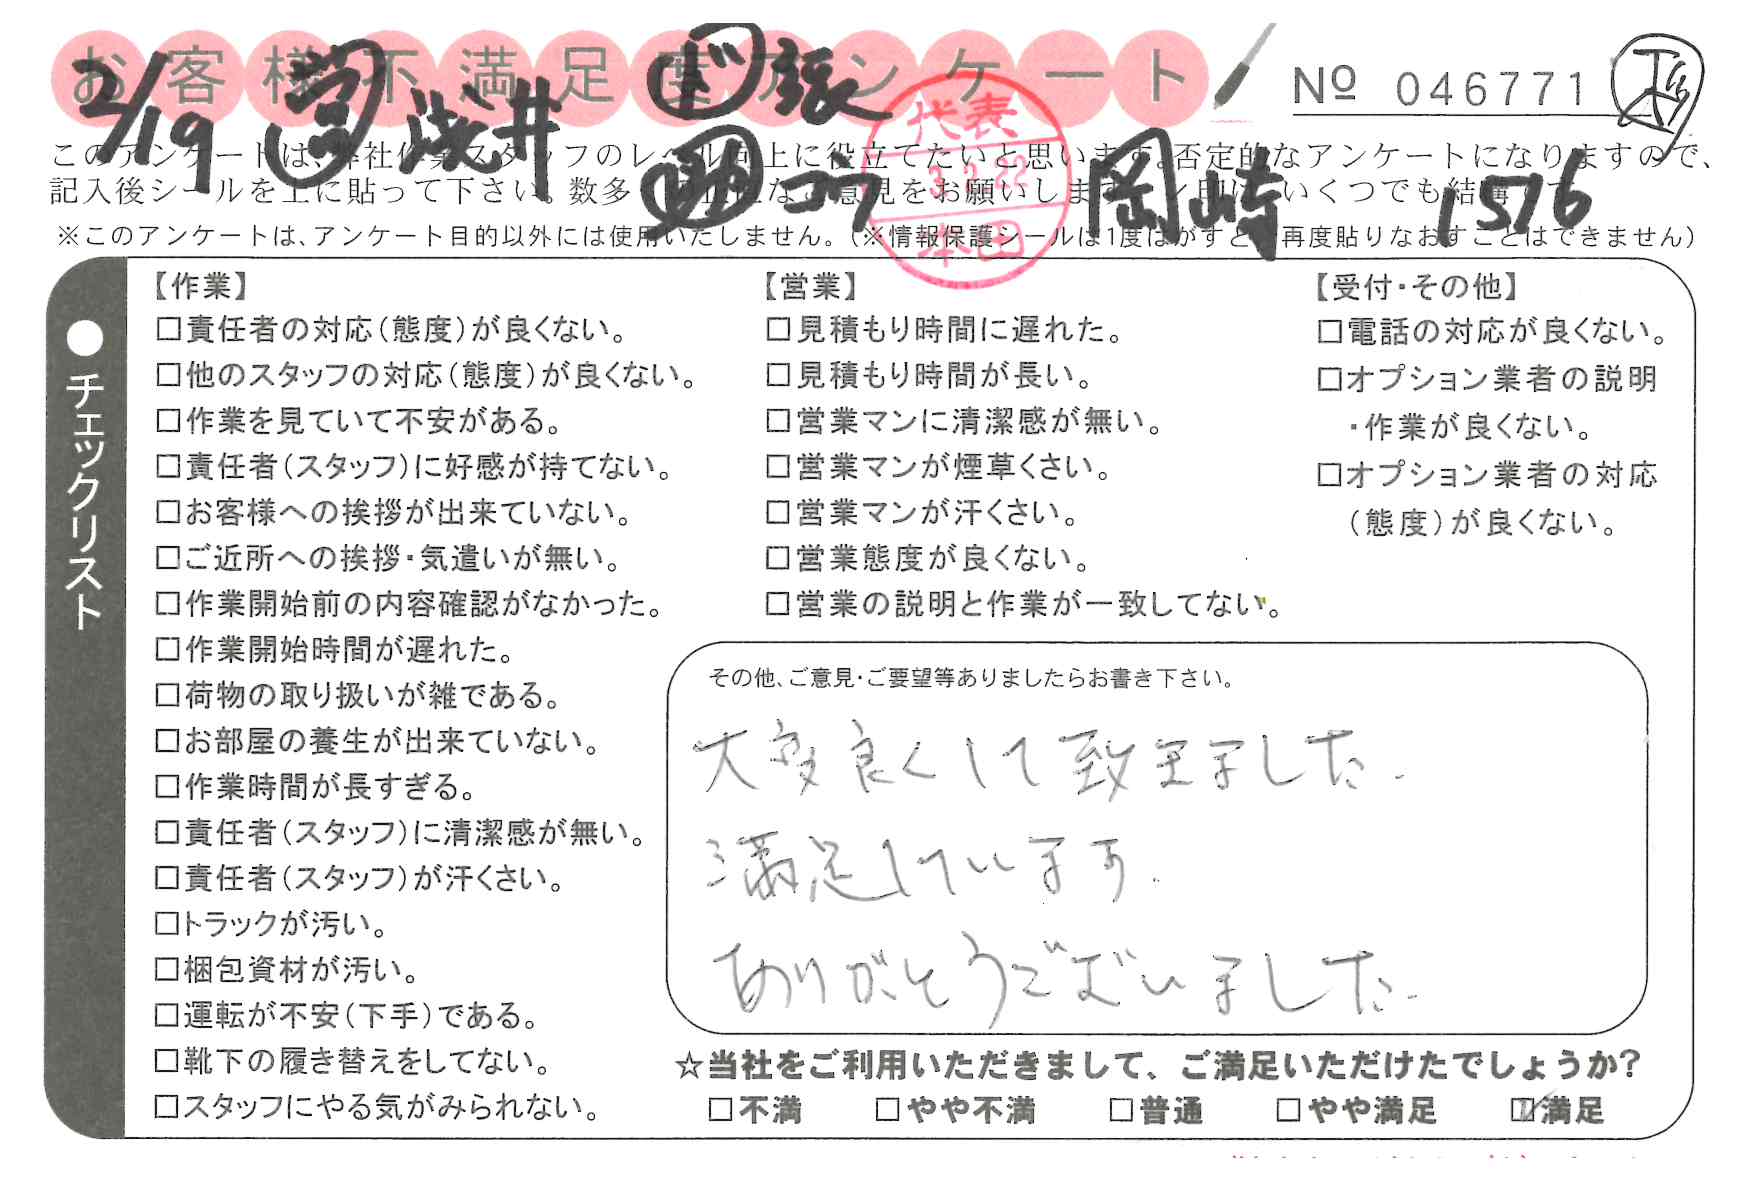 お客様不満足度アンケート
Nº 046771
2/19 営 浅井 ド 張
コワ 岡崎 1576
代表
3.2.22
本田
このアンケートは、弊社作業スタッフのレベル向上に役立てたいと思います。否定的なアンケートになりますので、
記入後シールを上に貼って下さい。数多くの正直なご意見をお願いします。レ印は、いくつでも結構です。
※このアンケートは、アンケート目的以外には使用いたしません。(※情報保護シールは1度はがすと、再度貼りなおすことはできません)
●チェックリスト
【作業】
□責任者の対応(態度)が良くない。
□他のスタッフの対応(態度)が良くない。
□作業を見ていて不安がある。
□責任者(スタッフ)に好感が持てない。
□お客様への挨拶が出来ていない。
□ご近所への挨拶・気遣いが無い。
□作業開始前の内容確認がなかった。
□作業開始時間が遅れた。
□荷物の取り扱いが雑である。
□お部屋の養生が出来ていない。
□作業時間が長すぎる。
□責任者(スタッフ)に清潔感が無い。
□責任者(スタッフ)が汗くさい。
□トラックが汚い。
□梱包資材が汚い。
□運転が不安(下手)である。
□靴下の履き替えをしてない。
□スタッフにやる気がみられない。
【営業】
□見積もり時間に遅れた。
□見積もり時間が長い。
□営業マンに清潔感が無い。
□営業マンが煙草くさい。
□営業マンが汗くさい。
□営業態度が良くない。
□営業の説明と作業が一致してない。
【受付・その他】
□電話の対応が良くない。
□オプション業者の説明
・作業が良くない。
□オプション業者の対応
(態度)が良くない。
その他、ご意見・ご要望等ありましたらお書き下さい。
大変良くして致きました.
満足しています.
ありがとうございました.
☆当社をご利用いただきまして、ご満足いただけたでしょうか?
□不満 □やや不満 □普通 □やや満足 ☑満足